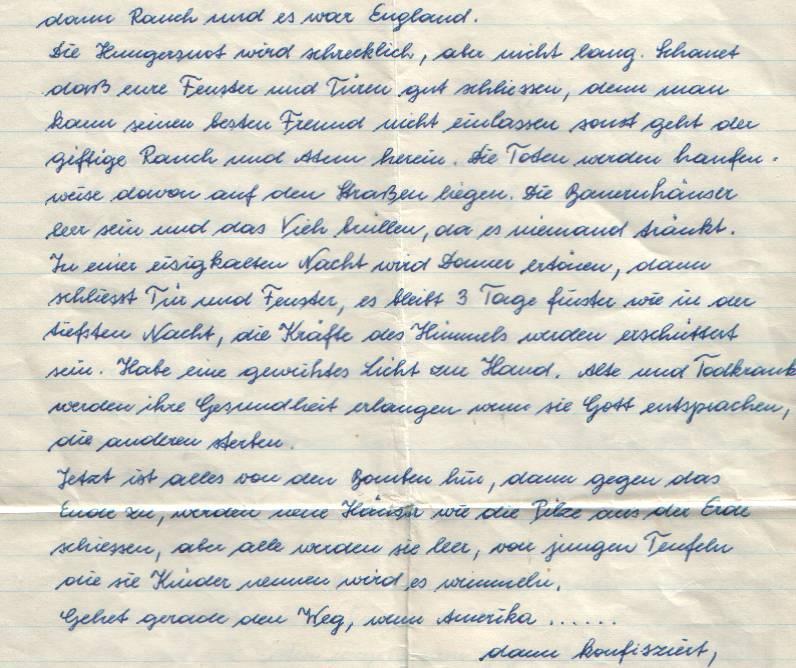 dann Rauch und es war England.
Die Hungersnot wird schrecklich, aber nicht lang. Schauet
daß eure Fenster und Türen gut schliessen, denn man
kann seinen besten Freund nicht einlassen sonst geht der
giftige Rauch und Atem herein. Die Toten werden haufen-
weise davon auf den Straßen liegen. Die Bauernhäuser
leer sein und das Vieh brüllen, da es niemand tränkt.
In einer eisigkalten Nacht wird Donner ertönen, dann
schliesst Tür und Fenster, es bleibt 3 Tage finster wie in der
tiefsten Nacht, die Kräfte des Himmels werden erschüttert
sein. Habe eine geweihtes Licht zur Hand. Alte und Todkrank
werden ihre Gesundheit erlangen wenn sie Gott entsprachen,
die anderen sterben.
Jetzt ist alles von den Bomben hin, dann gegen das
Ende zu, werden neue Häuser wie die Pilze aus der Erde
schiessen, aber alle werden sie leer, von jungen Teufeln
die sie Kinder nennen wird es wimmeln.
Gehet gerade den Weg, wenn Amerika ......
dann konfisziert,